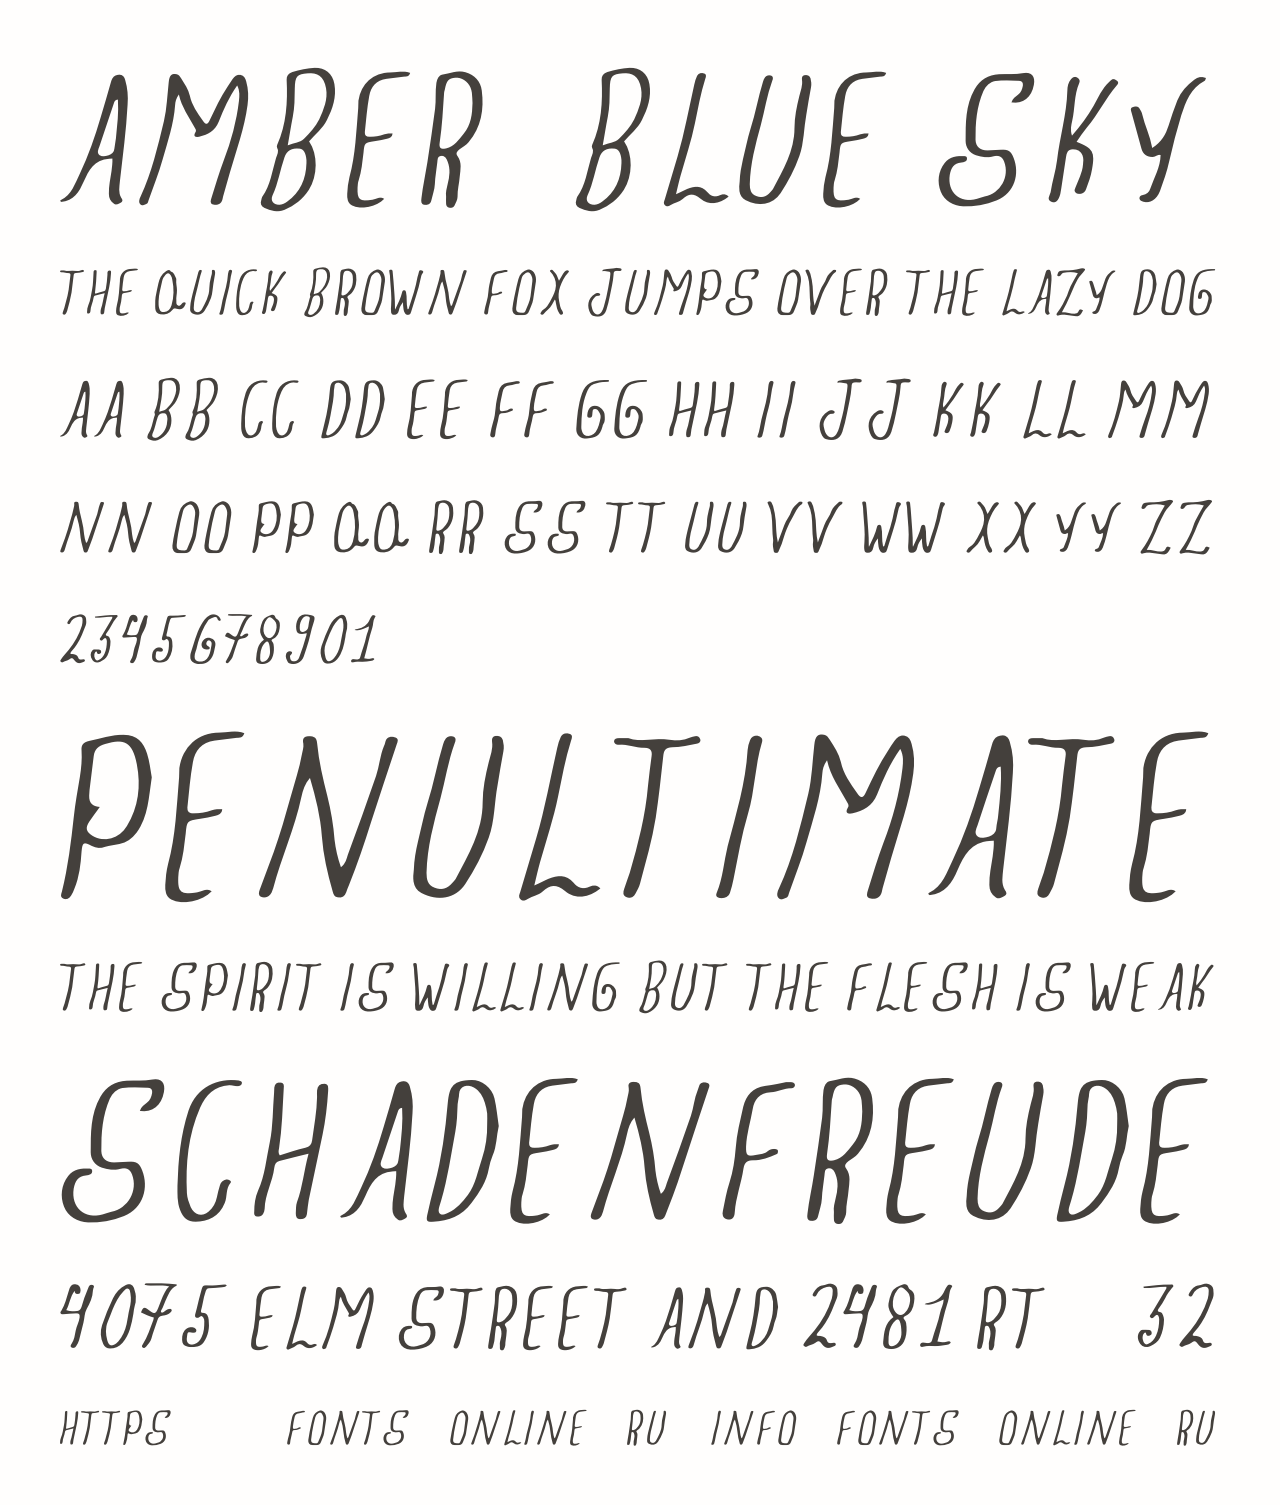 AMBER BLUE SKY
THE QUICK BROWN FOX JUMPS OVER THE LAZY DOG
AA BB CC DD EE FF GG HH II JJ KK LL MM
NN OO PP QQ RR SS TT UU VV WW XX YY ZZ
2345678901
PENULTIMATE
THE SPIRIT IS WILLING BUT THE FLESH IS WEAK
SCHADENFREUDE
4075 ELM STREET AND 2481 RT 32
HTTPS FONTS ONLINE RU INFO FONTS ONLINE RU